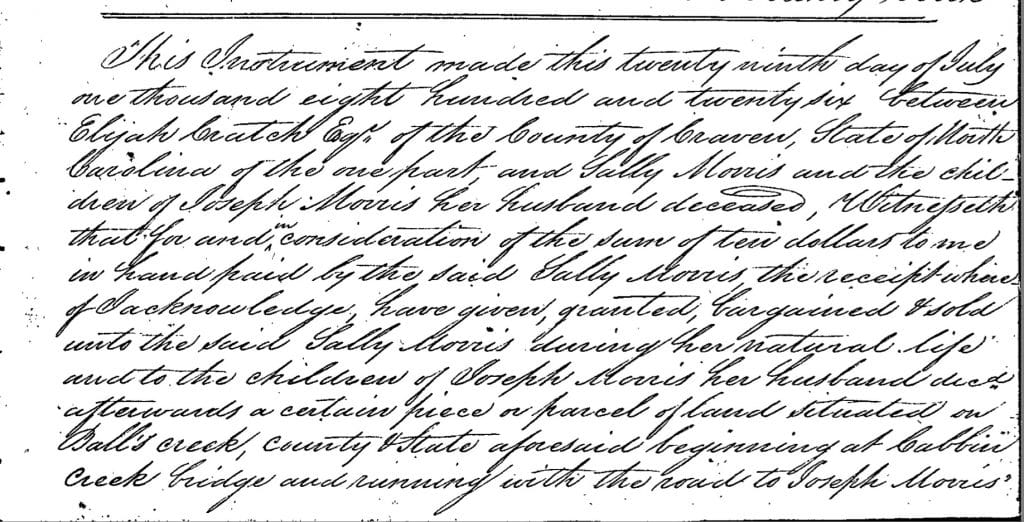 This Instrument made this twenty ninth day of July
one thousand eight hundred and twenty six between
Elijah Cratch Esqr of the County of Craven, State of North
Carolina of the one part, and Sally Morris and the chil-
dren of Joseph Morris her husband deceased, Witnesseth
that for and in consideration of the sum of ten dollars to me
in hand paid by the said Sally Morris, the receipt where
of I acknowledge, have given, granted, bargained & sold
unto the said Sally Morris during her natural life
and to the children of Joseph Morris her husband decd
afterwards a certain piece or parcel of land situated on
Ball's creek, county & State aforesaid beginning at Cabbin
creek bridge and running with the road to Joseph Morris'